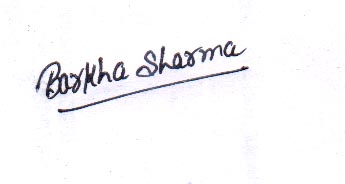 Barkha Sharma